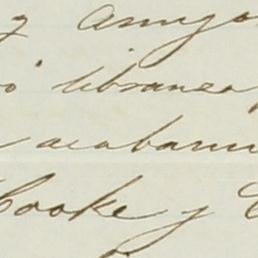 y amigo
libranza
acabam
Cooke y C